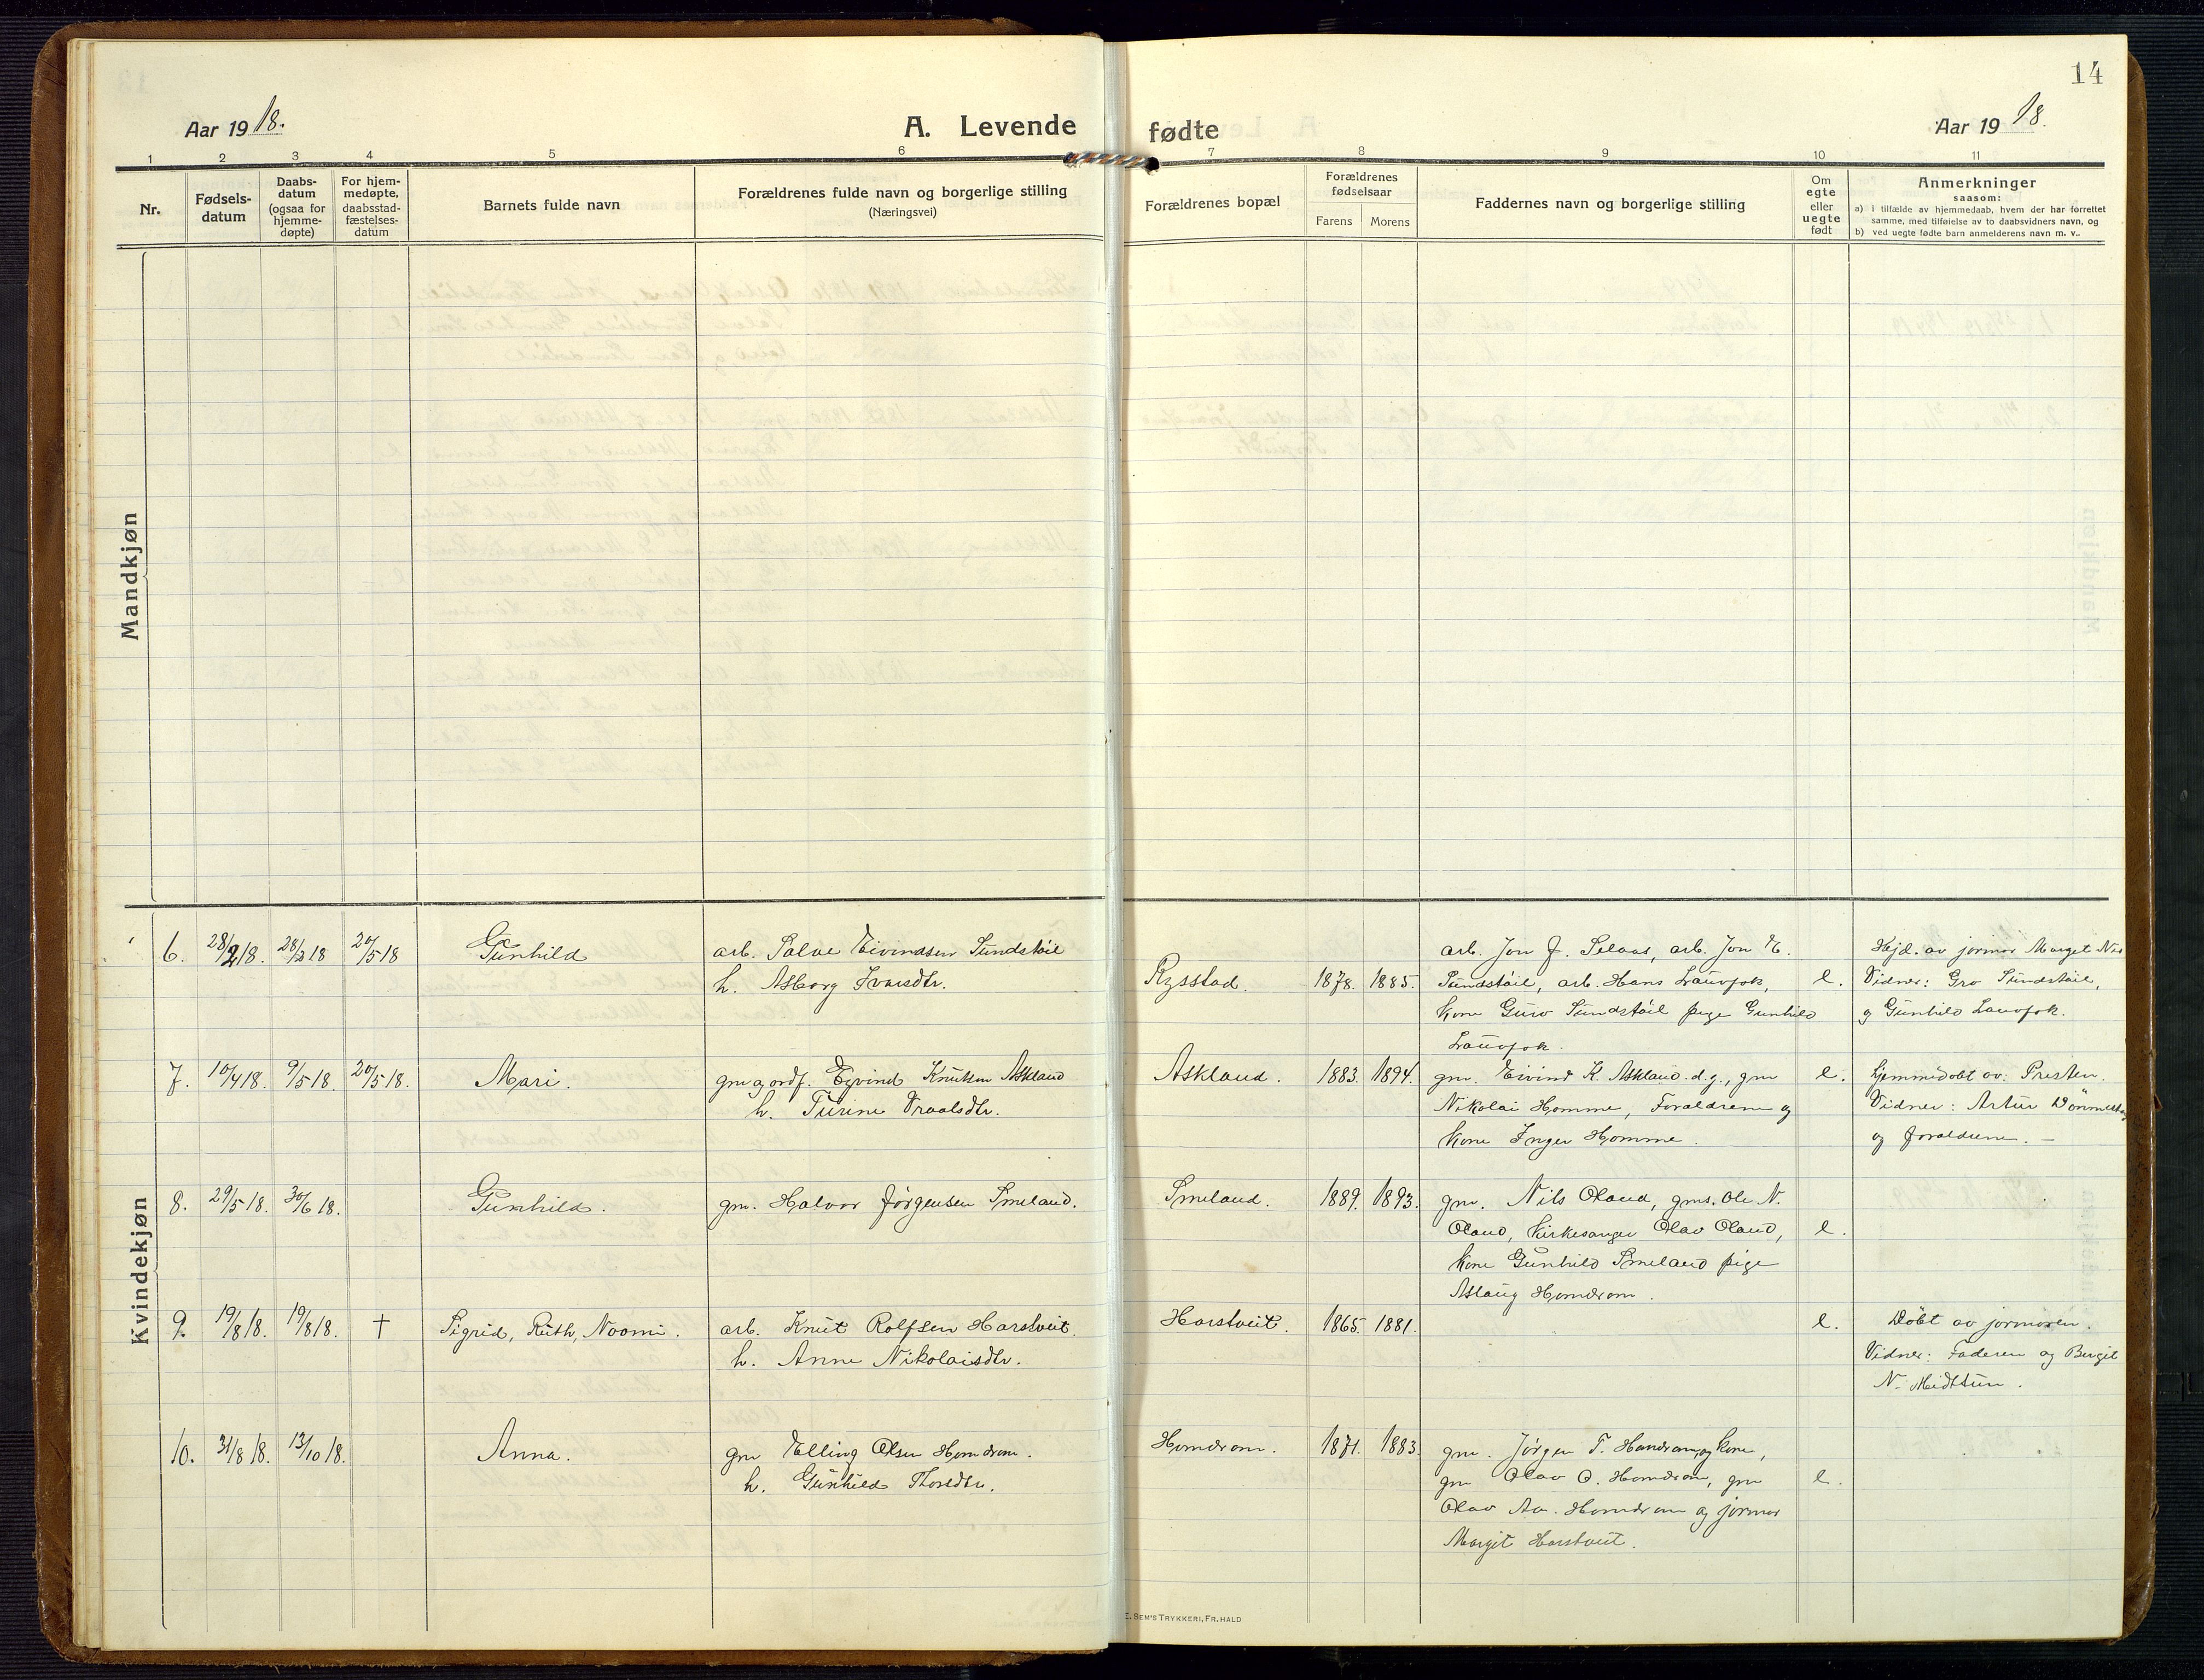 14
Aar 1918.
A. Levende fødte
Aar 1918.
1 2 3 4 5 6 7 8 9 10 11
Nr.
Fødsels-
datum
Daabs-
datum
(ogsaa for
hjemme-
døpte)
For hjem-
medøpte,
daabsstad-
fæstelses-
datum
Barnets fulde navn
Forældrenes fulde navn og borgerlige stilling
(Næringsvei)
Forældrenes bopæl
Forældrenes
fødselsaar
Farens Morens
Faddernes navn og borgerlige stilling
Om
egte
eller
uegte
født
Anmerkninger
saasom:
a) i tilfælde av hjemmedaab, hvem der har forrettet
samme, med tilføielse av to daabsvidners navn, og
b) ved uegte fødte barn anmelderens navn m. v..
Mandkjøn
Kvindekjøn
6. 28/2 18. 28/2 18 20/5 18 Gunhild
arb. Salve Eivindsen Sundstøil
h. Asborg Ivarsdtr.
Rysstad. 1878. 1885.
arb. Jon J. Selaas, arb. Jon E.
Sundstøil, arb. Hans Lauvfok,
kone Guro Sundstøil pige Gunhild
Lauvfok.
e.
Hjd. av jormor Marget
Vidner: Gro Sundstøil,
og Gunhild Lauvfok.
7. 10/4 18. 9/5 18. 20/5 18. Mari.
gm og ordf. Eyvind Knutsen Askland
h. Turine Vraalsdtr.
Askland. 1883. 1894.
gm. Eivind K. Askland d.y., gm
Nikolai Homme, Forældrene og
kone Inger Homme.
e.
hjemmedøbt av Presten.
Vidner: Artur
og forældrene. —
8. 29/5 18. 30/6 18. Gunhild.
gm. Halvor Jørgensen Smeland.
Smeland. 1889. 1893.
gm. Nils Oland, gms. Ole N.
Oland, Kirkesanger Olav Oland,
kone Gunhild Smeland pige
Aslaug Homdrom.
e.
9. 19/8 18. 19/8 18. † Sigrid, Ruth, Noomi.
arb. Knut Rolfsen Harstveit.
h. Anne Nikolaisdtr.
Harstveit. 1865. 1881.
e.
Døbt av jormoren.
Vidner: Faderen og Bergit
N. Midttun.
10. 31/8 18. 13/10 18. Anna.
gm Elling Olsen Homdrom.
h. Gunhild Thorsdtr.
Homdrom. 1871. 1883.
gm. Jørgen T. Homdrom og kone,
gm Olav O. Homdrom, gm
Olav Aa. Homdrom og jormor
Margit Harstveit.
e.
E. SEM'S TRYKKERI, FR. HALD